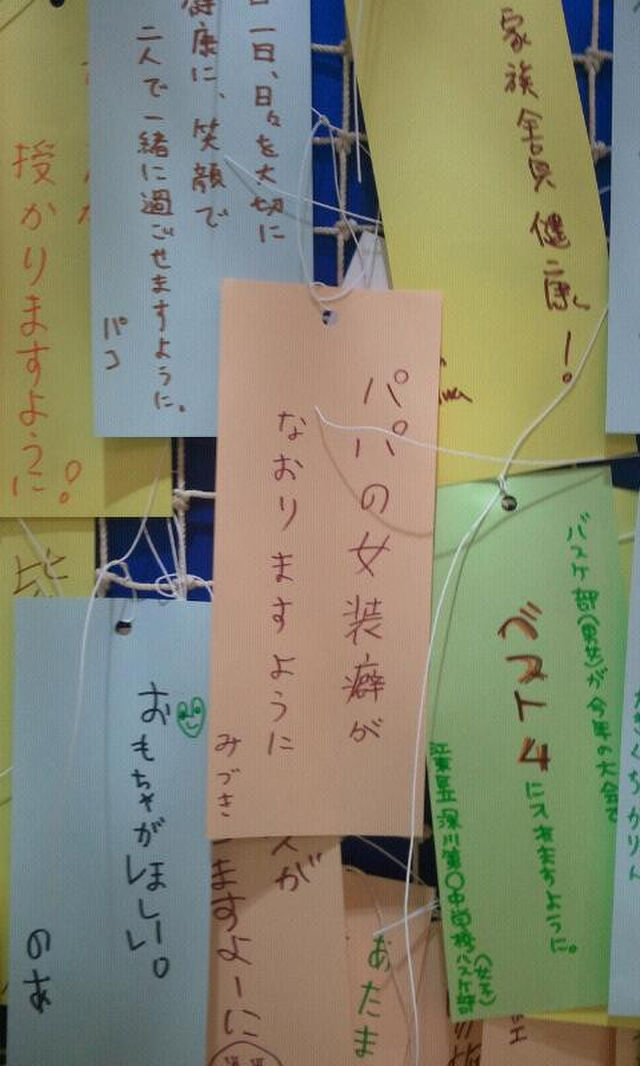 家族全員健康!
日一日、日々を大切に
健康に、笑顔で
二人で一緒に過ごせますように。
パコ
授かりますように!
パパの女装癖が
なおりますように
みづき
バスケ部(男女)が今年の大会で
ベスト4
に入れますように。
江東区立深川第〇中学校バスケ部
(女子)
おもちゃがほしい。
のあ
ますよーに
あたま